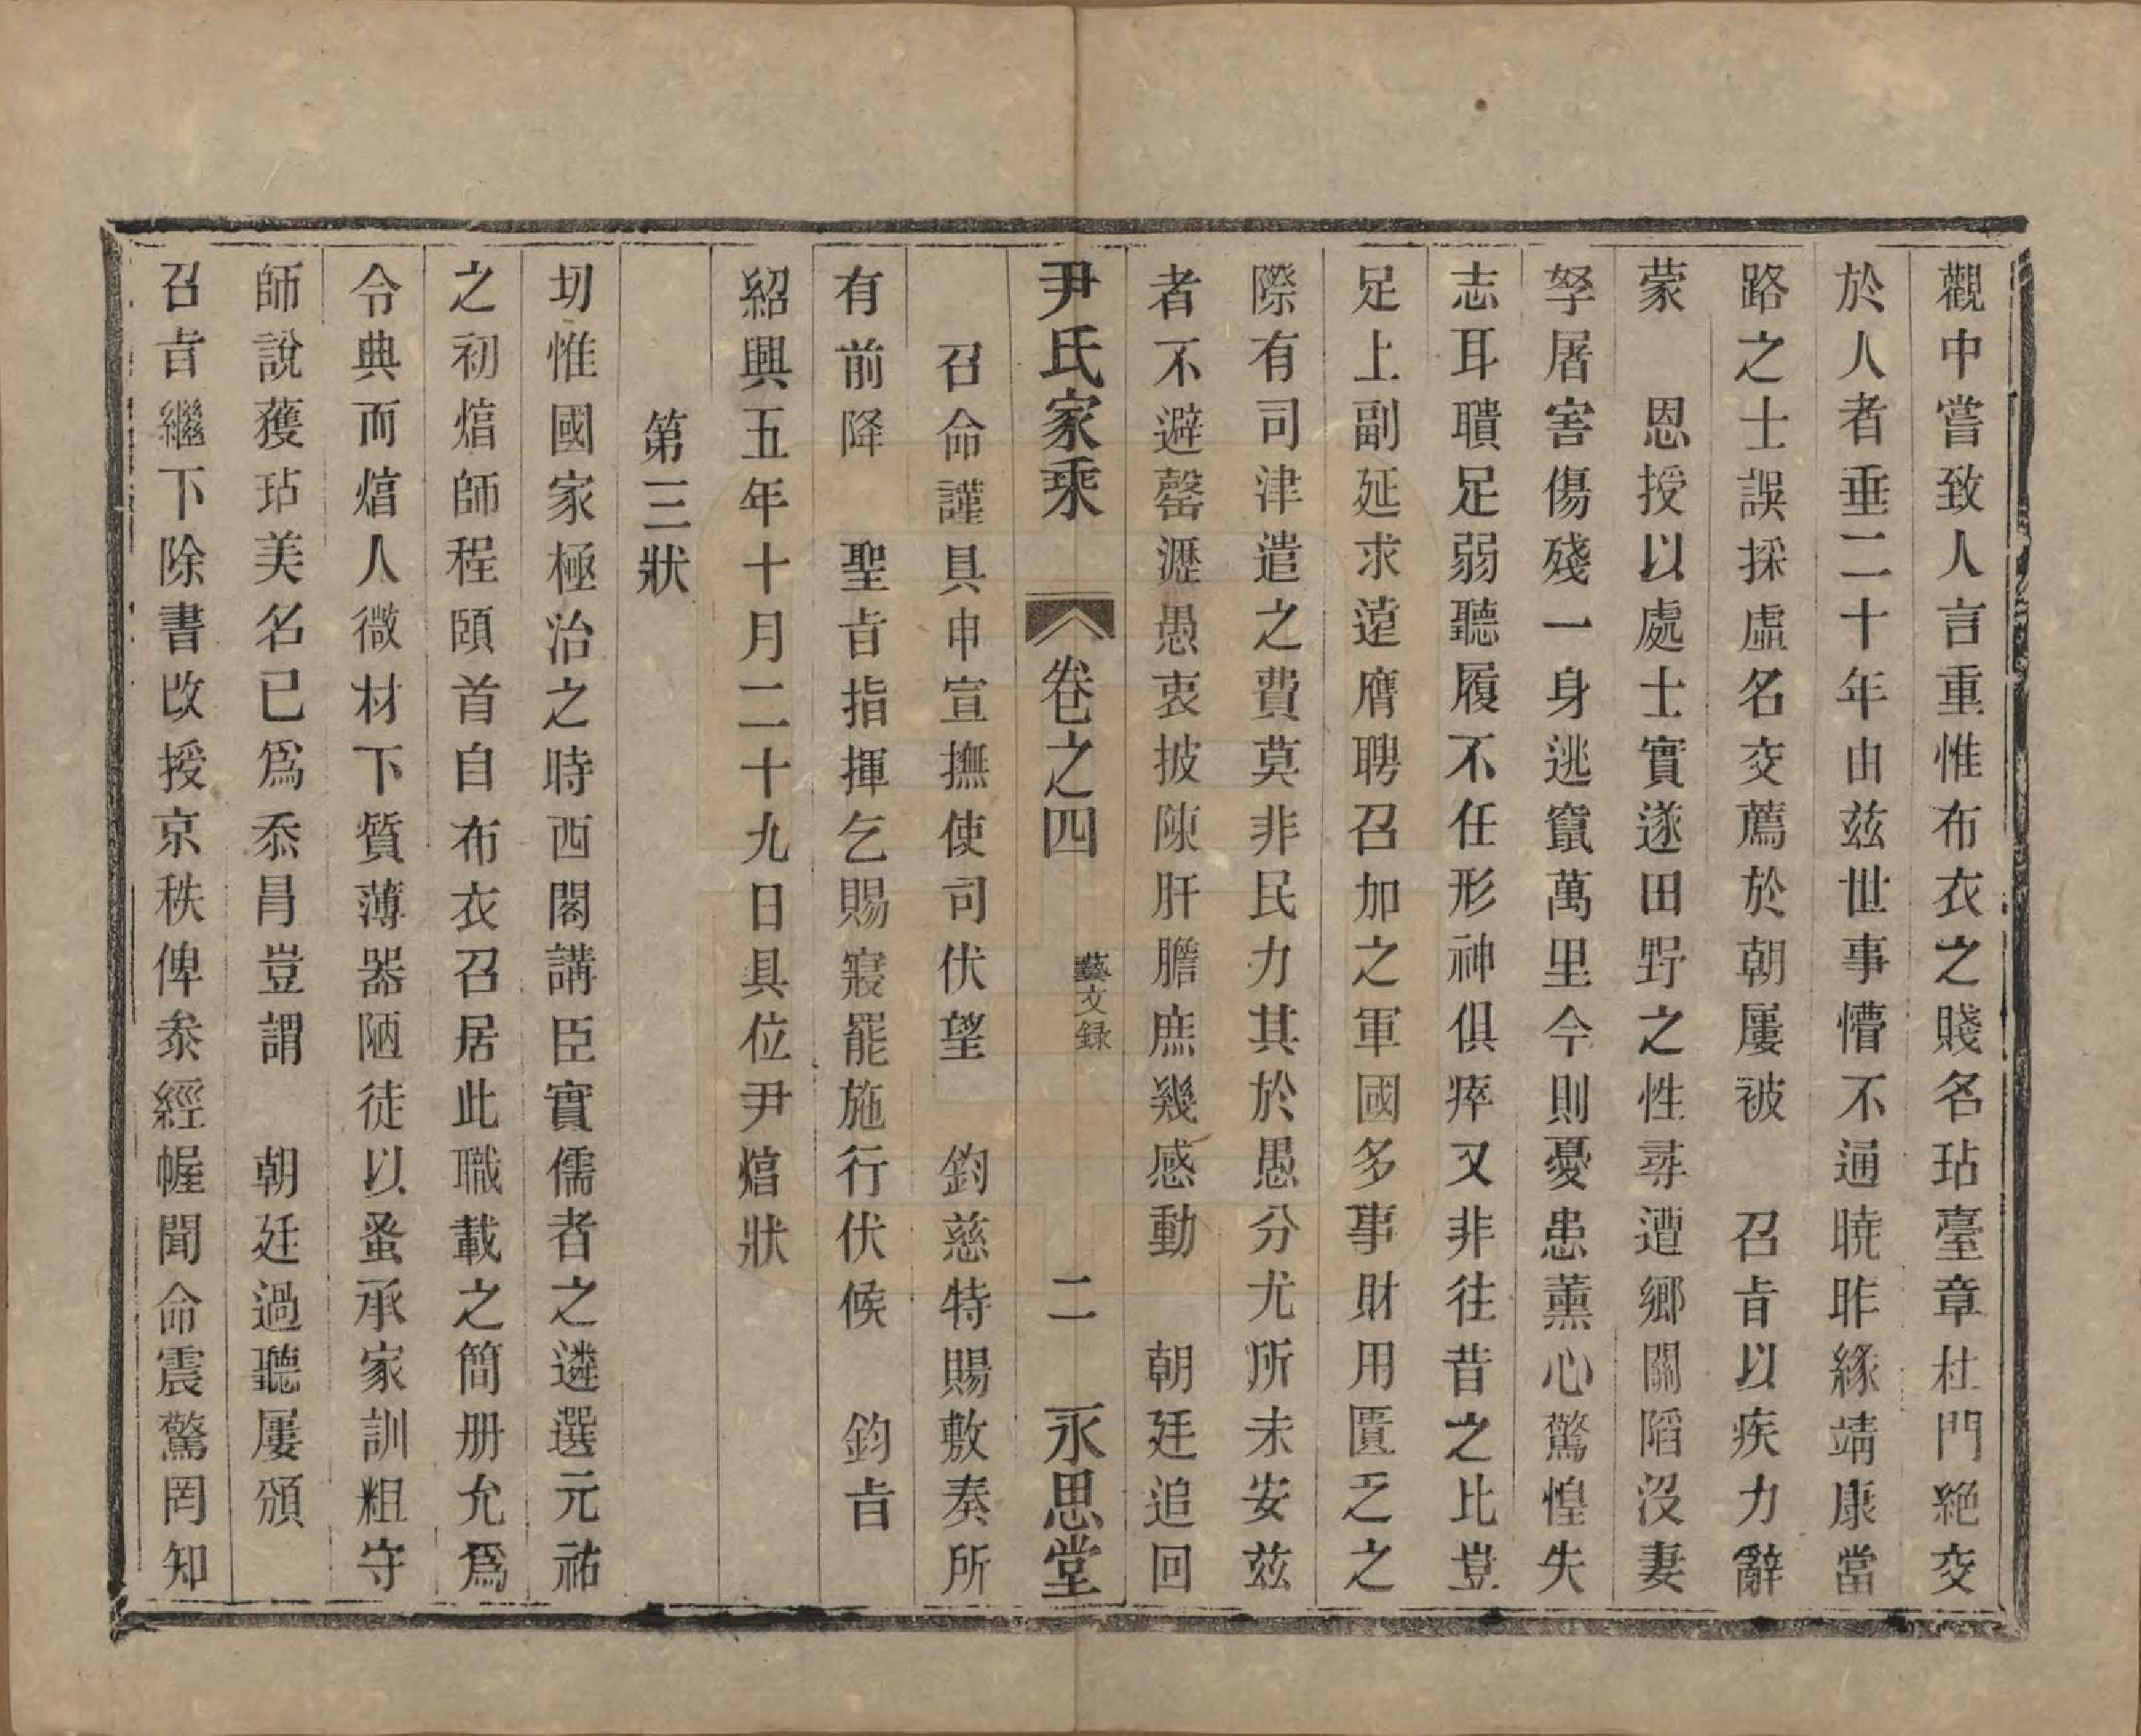 觀中嘗致人言重惟布衣之賤名玷臺章杜門絶交
於人者垂二十年由兹世事懵不通曉昨緣靖康當
路之士誤採虛名交薦於朝屢被　召㫖以疾力辭
蒙　恩授以處士實遂田野之性尋遭鄉關陷沒妻
孥屠害傷殘一身逃竄萬里今則憂患薰心驚惶失
志耳聵足弱聽履不任形神俱瘁又非往昔之比豈
足上副延求遠膺聘召加之軍國多事財用匱乏之
際有司津遣之費莫非民力其於愚分尤所未安兹
者不避罄瀝愚衷披陳肝膽庶幾感動　朝廷追回
尹氏家乘　卷之四　藝文録　二　永思堂
召命謹具申宣撫使司伏望　鈞慈特賜敷奏所
有前降　聖㫖指揮乞賜寢罷施行伏候　鈞㫖
紹興五年十月二十九日具位尹焞狀
第三狀
切惟國家極治之時西閣講臣實儒者之遴選元祐
之初焞師程頤首自布衣召居此職載之簡册允爲
令典而焞人微材下質薄器陋徒以蚤承家訓粗守
師說獲玷美名已爲忝冒豈謂　朝廷過聽屢頒
召㫖繼下除書改授京秩俾叅經幄聞命震驚罔知